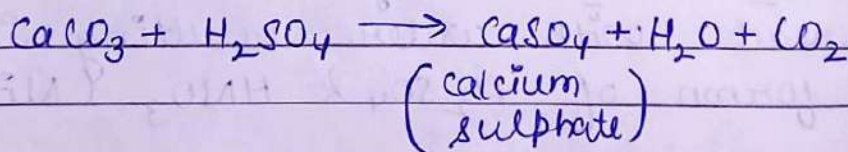 CaCO₃ + H₂SO₄ ⟶ CaSO₄ + H₂O + CO₂
(calcium
sulphate)